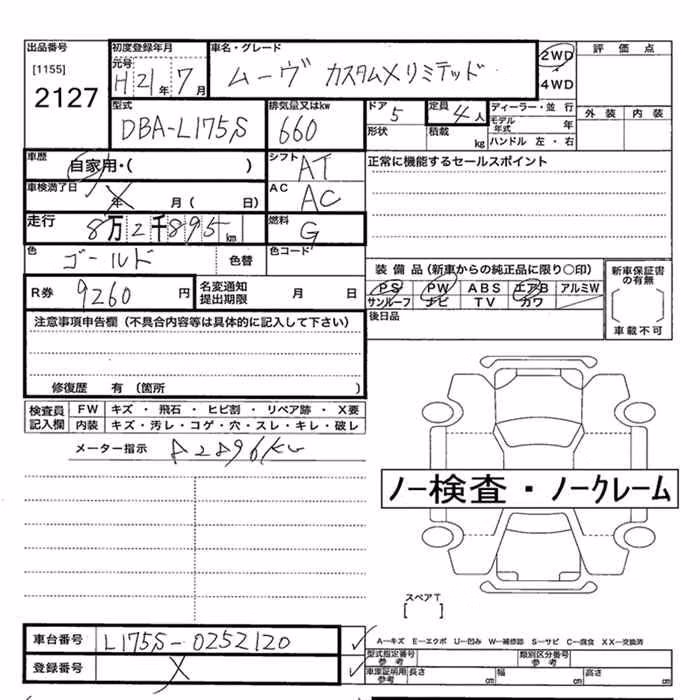 出品番号
[1155]
2127
初度登録年月
元号
H 21年 7月
車名・グレード
ムーヴ カスタムXリミテッド
2WD
4WD
評価点
外装 内装
型式
DBA-L175S
排気量又はkw
660
ドア
5
形状
定員
4人
積載 kg
ディーラー・並行
モデル年式 年
ハンドル 左・右
車歴
自家用・( )
シフト
AT
正常に機能するセールスポイント
車検満了日
X 年 月( 日)
AC
AC
走行
8万2千895km
燃料
G
色
ゴールド
色替
色コード
R券
9260円
名変通知
提出期限
月 日
装備品(新車からの純正品に限り○印)
PS PW ABS エアB アルミW
サンルーフ ナビ TV カワ
新車保証書
の有無
[ ]
車載不可
後日品
注意事項申告欄(不具合内容等は具体的に記入して下さい)
修復歴 有(箇所 )
検査員
記入欄
FW キズ・飛石・ヒビ割・リペア跡・X要
内装 キズ・汚レ・コゲ・穴・スレ・キレ・破レ
メーター指示
ノー検査・ノークレーム
スペアT
[ ]
車台番号
L175S-0252120
登録番号
X
A-キズ E-エクボ U-凹み W-補修跡 S-サビ C-腐食 XX-交換済
型式指定番号
参考
類別区分番号
参考
車庫証明用
参考
長さ cm 幅 cm 高さ cm